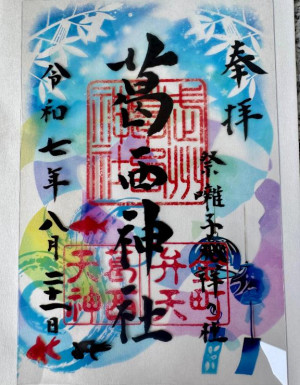 奉拝
祭囃子発祥の社
葛西神社
令和七年八月二十一日
金町
弁天
葛西
天神